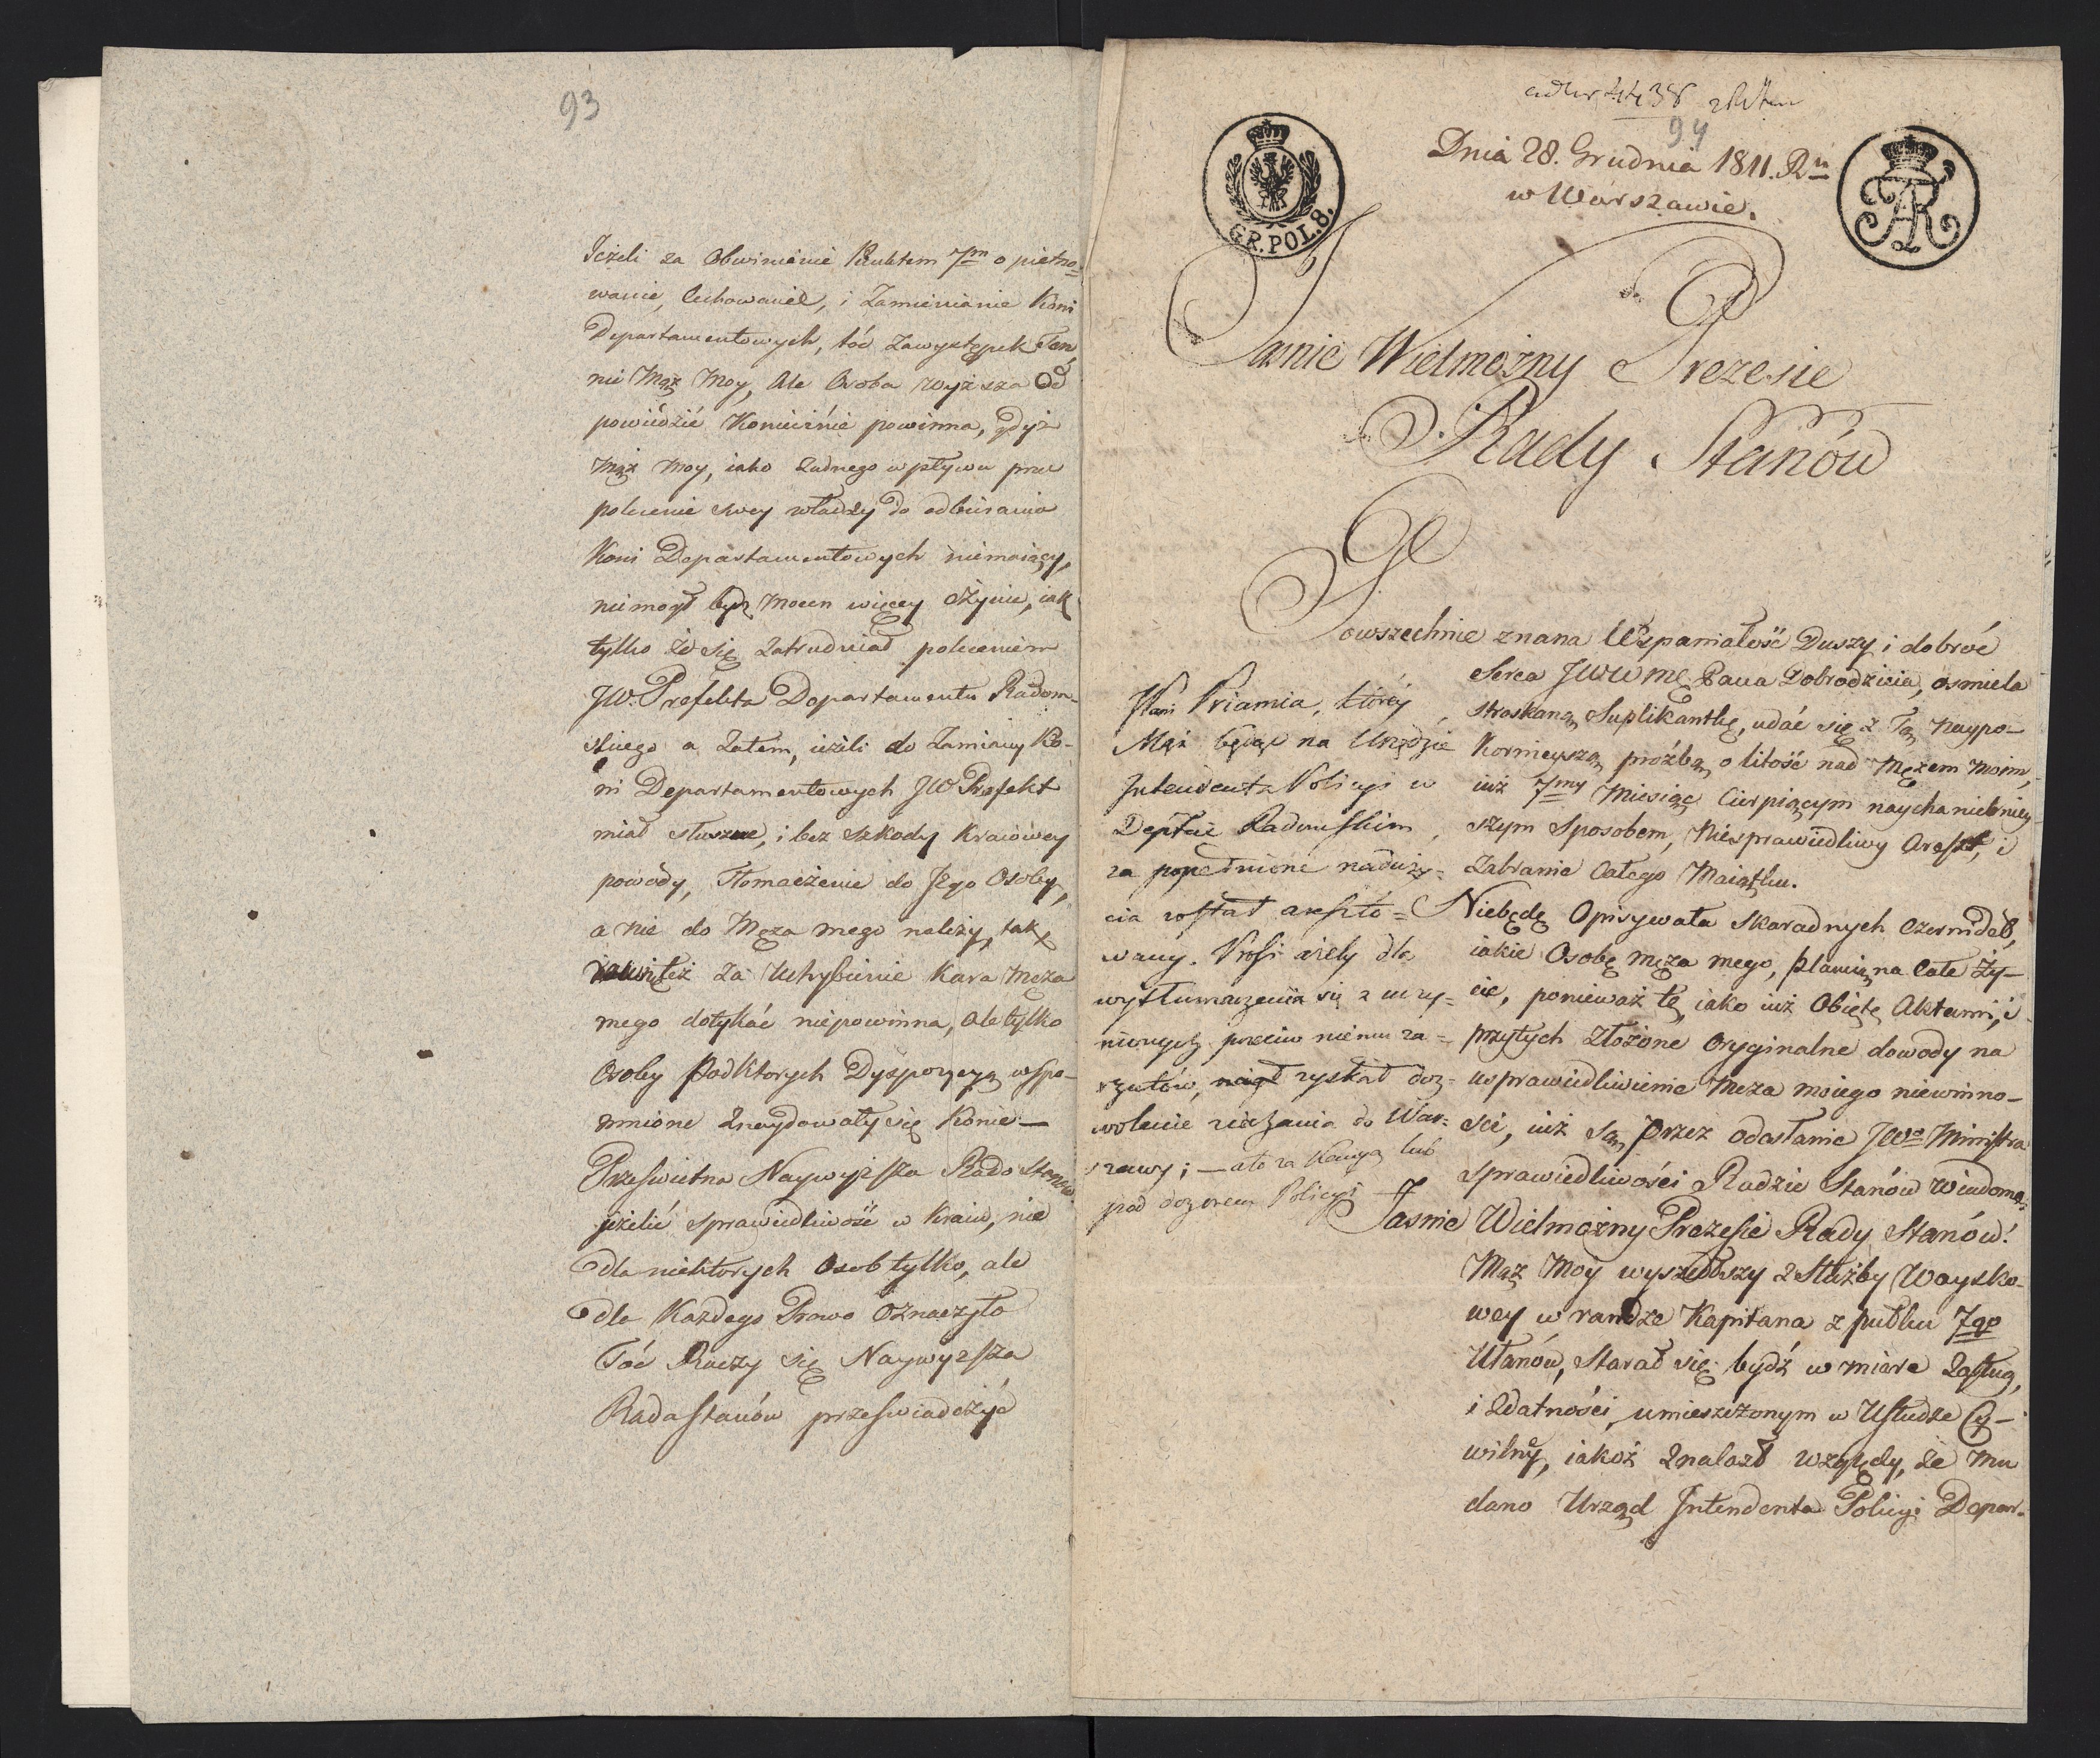 93
Jeżeli za Obwinienie Punktem 7m o piętno=
wanie, Cechowanie, i Zamienianie Koni
Departamentowych, toć Zawystępek Ten,
nie Mąż Moy, Ale Osoba wyższa Od
powiedzieć Koniecznie powinna, gdyż
Mąż Moy, iako żadnego wpływu prze
polecenie swey władzy do odbierania
Koni Departamentowych niemaiący,
niemógł bydź Mocen więcey czynić, iak
tylko że się Zatrudniał poleceniem
JW. Prefekta Departamentu Radom-
skiego a Zatem, ieżeli do Zamiany Ko-
ni Departamentowych JW Prefekt
miał słuszne, i bez szkody Kraiowey
powody, Tłomaczenie do Jego Osoby,
a nie do Męża mego należy, tak
też za Uchybienie Kara Męża
mego dotykać niepowinna, Ale tylko
Osoby pod Ktorych Dyspozycyą wspo-
mnione Znaydowały się Konie —
Prześwietna Naywyższa Rado Stanow
jeżelić sprawiedliwość w Kraiu, nie
dla niektorych Osob tylko, ale
dla Każdego Prawo Oznaczyło
Toć Raczy się Naywyższa
Rada Stanów przeświadczyć
4438
94
Dnia 28. Grudnia 1811. Ru
w Warszawie.
GR. POL. 8.
Jaśnie Wielmożny Prezesie
Rady Stanów
Powszechnie znana Wspaniałość Duszy i dobroć
Serca JWWMę Pana Dobrodzieia, ośmiela
stroskaną Suplikantkę, udać się z Tą naypo-
kornieyszą proźbą o litość nad Mężem moim,
iuż 7my Miesiąc Cierpiącym nayhaniebniey-
szym Sposobem, Niesprawiedliwy Areszt, i
Zabranie Całego Maiątku.
Niebędę Opisywała Skaradnych Czernideł,
iakie Osobę męża mego, plamią na Całe Ży-
cie, ponieważ te, iako iuż Obięte Aktami, i
przytych Złożone Oryginalne dowody na
usprawiedliwienie Męża moiego niewinno-
ści, iuż są przez Odesłanie JWo Ministra
Sprawiedliwości Radzie Stanów Wiadome.
Jaśnie Wielmożny Prezesie Rady Stanów!
Mąż Moy wyszedłszy z Służby Woysko-
wey w randze Kapitana z pułku 7go
Ułanów, Starał się bydź w miarę Zasług,
i Zdatności, umieszczonym w Usłudze Cy-
wilny, iakoż Znalazł względy, że Mu
dano Urząd Intendenta Policyi Depar-
Pani Priamia, którey
Mąż będąc na Urzędzie
Intendenta Policyi w
Deptcie Radomskim,
za popełnione naduży=
cia został areszto=
wany. Prosi ażeby dla
wytłumaczenia się z uczy=
nionych przeciw niemu za=
rzutów, zyskał doz=
wolenie ziechania do War=
szawy; — ale za Kaucyą lub
pod dozorem Policyi